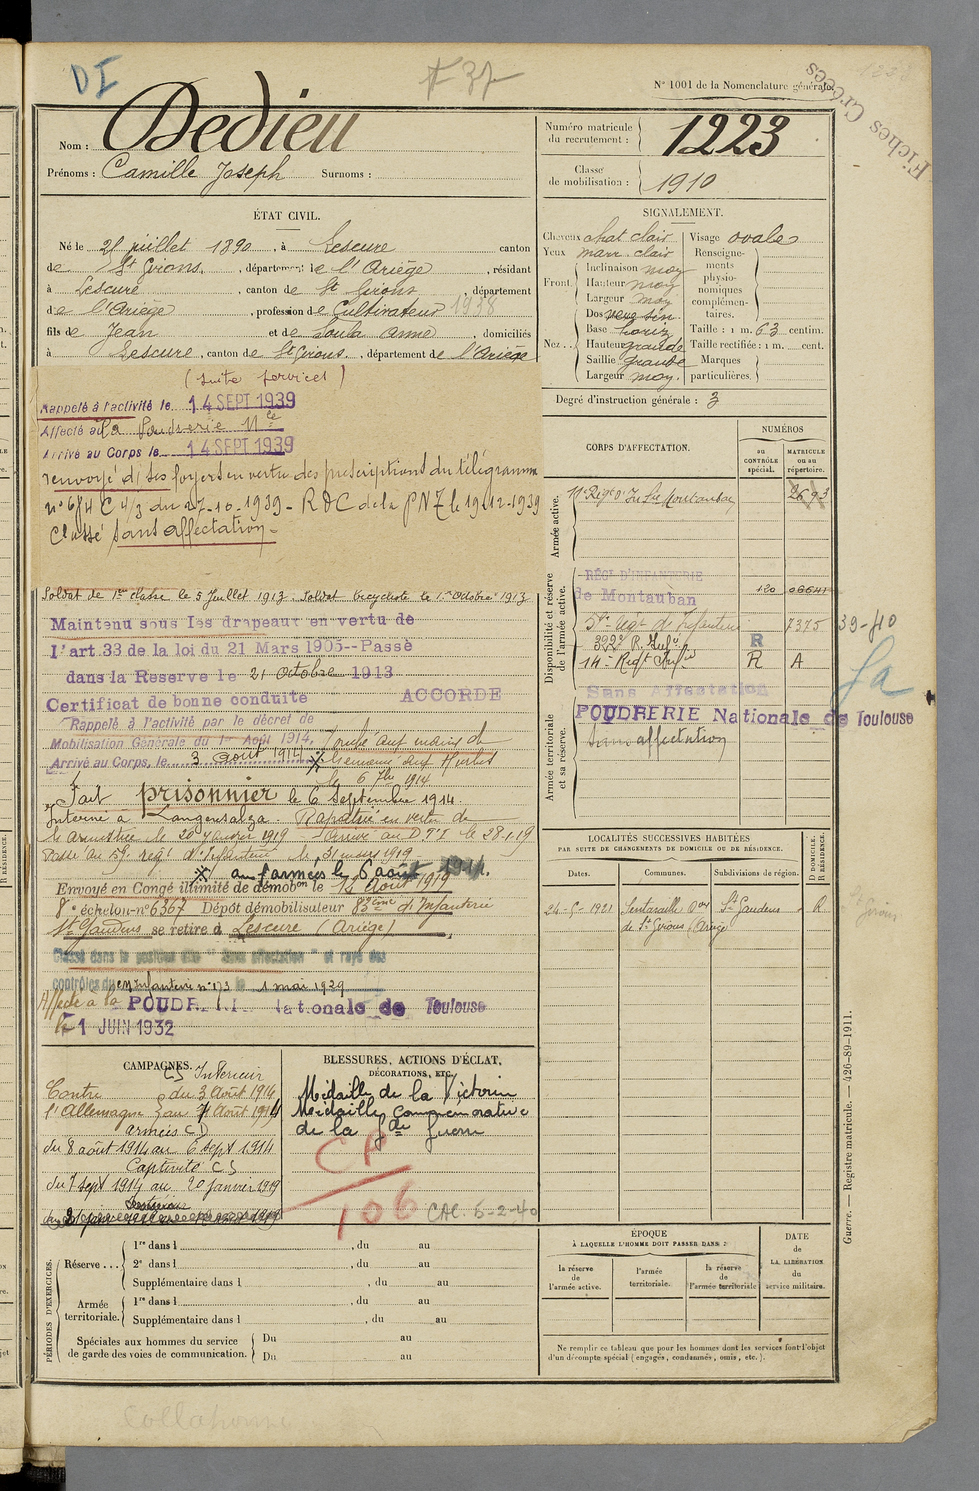 DI
F 37
N° 1001 de la Nomenclature générale.
Fiches Créées
Nom : Dedieu
Prénoms : Camille Joseph Surnoms :
Numéro matricule du recrutement : 1223
Classe de mobilisation : 1910
ÉTAT CIVIL.
Né le 21 juillet 1890, à Lescure canton
de St Girons, département de l'Ariège, résidant
à Lescure, canton de St Girons, département
de l'Ariège, profession de Cultivateur 1938
fils de Jean et de Soula Anne, domiciliés
à Lescure, canton de St Girons, département de l'Ariège
SIGNALEMENT.
Cheveux chat clair
Yeux marr. clair
Front. Inclinaison moy
Hauteur moy
Largeur moy
Nez.. Dos
Base horiz
Hauteur grande
Saillie grande
Largeur moy.
Visage ovale
Renseignements physionomiques complémentaires.
Taille : 1 m. 63 centim.
Taille rectifiée : 1 m. cent.
Marques particulières.
Degré d'instruction générale : 3
(suite services)
Rappelé à l'activité le 14 SEPT 1939
Affecté à la Poudrerie Nle
Arrivé au Corps le 14 SEPT 1939
renvoyé ds ses foyers en vertu des prescriptions du télégramme
n° 6/4 C 4/3 du 27-10-1939 - RDC de la PNT le 19-12-1939
Classé sans affectation -
Soldat de 1re classe le 5 Juillet 1913. Soldat bicycliste le 1er Octobre 1913
Maintenu sous les drapeaux en vertu de
l'art.33 de la loi du 21 Mars 1905--Passé
dans la Reserve le 21 Octobre 1913
Certificat de bonne conduite ACCORDE
Rappelé à l'activité par le décret de
Mobilisation Générale du 1er Août 1914,
Arrivé au Corps, le 3 août 1914
le 6 7bre 1914
Fait prisonnier le 6 Septembre 1914.
Interné à Langensalza. Rapatrié en vertu de
l'armistice le 20 Janvier 1919 Arrivé au D.T.I le 28-1-19
Passé au 59e régt d'Infanterie le 31 mars 1919
X aux armées le 6 août 1914.
Envoyé en Congé illimité de démobon le 14 Août 1919
8e échelon-n° 6367 Dépôt démobilisateur 83ème d'Infanterie
St Gaudens se retire à Lescure (Ariège)
Classé dans la position dite " Sans affectation " et rayé des
contrôles du cm Infanterie n° 173 le 1 mai 1929
Affecté à la POUDRERIE Nationale de Toulouse
le 1 JUIN 1932
CORPS D'AFFECTATION.
NUMÉROS
au CONTRÔLE spécial.
MATRICULE ou au répertoire.
Armée active.
Régt d'Inf. Montauban 2693
Disponibilité et réserve de l'armée active.
RÉGt D'INFANTERIE
de Montauban 120
Régt de Infanterie 7375
R. Infie R
14e Régt Infie R A
39-40
Armée territoriale et sa réserve.
Sans Affectation
POUDRERIE Nationale de Toulouse
Sans affectation
LOCALITÉS SUCCESSIVES HABITÉES
PAR SUITE DE CHANGEMENTS DE DOMICILE OU DE RÉSIDENCE.
Dates. Communes. Subdivisions de région. D DOMICILE. R RÉSIDENCE.
24-5-1921 Lentaraille con St Gaudens R
de St Girons (Ariège
St Girons
CAMPAGNES.
CS Intérieur
Contre du 3 Août 1914
l'Allemagne au 7 Août 1914
armées CD
du 8 août 1914 au 6 sept 1914
Captivité CS
du 7 sept 1914 au 20 janvier 1919
BLESSURES, ACTIONS D'ÉCLAT,
DÉCORATIONS, ETC.
Médaille de la Victoire
Médaille commémorative
de la Gde Guerre
CP
106
CAC. 5-2-40
PÉRIODES D'EXERCICES.
Réserve... 1re dans l , du au
2e dans l , du au
Supplémentaire dans l , du au
Armée territoriale. 1re dans l , du au
Supplémentaire dans l , du au
Spéciales aux hommes du service de garde des voies de communication. Du au
Du au
ÉPOQUE
À LAQUELLE L'HOMME DOIT PASSER DANS :
la réserve de l'armée active.
l'armée territoriale.
la réserve de l'armée territoriale
DATE de LA LIBÉRATION du service militaire.
Ne remplir ce tableau que pour les hommes dont les services font l'objet
d'un décompte spécial (engagés, condamnés, omis, etc.).
Guerre. — Registre matricule. — 426-89-1911.